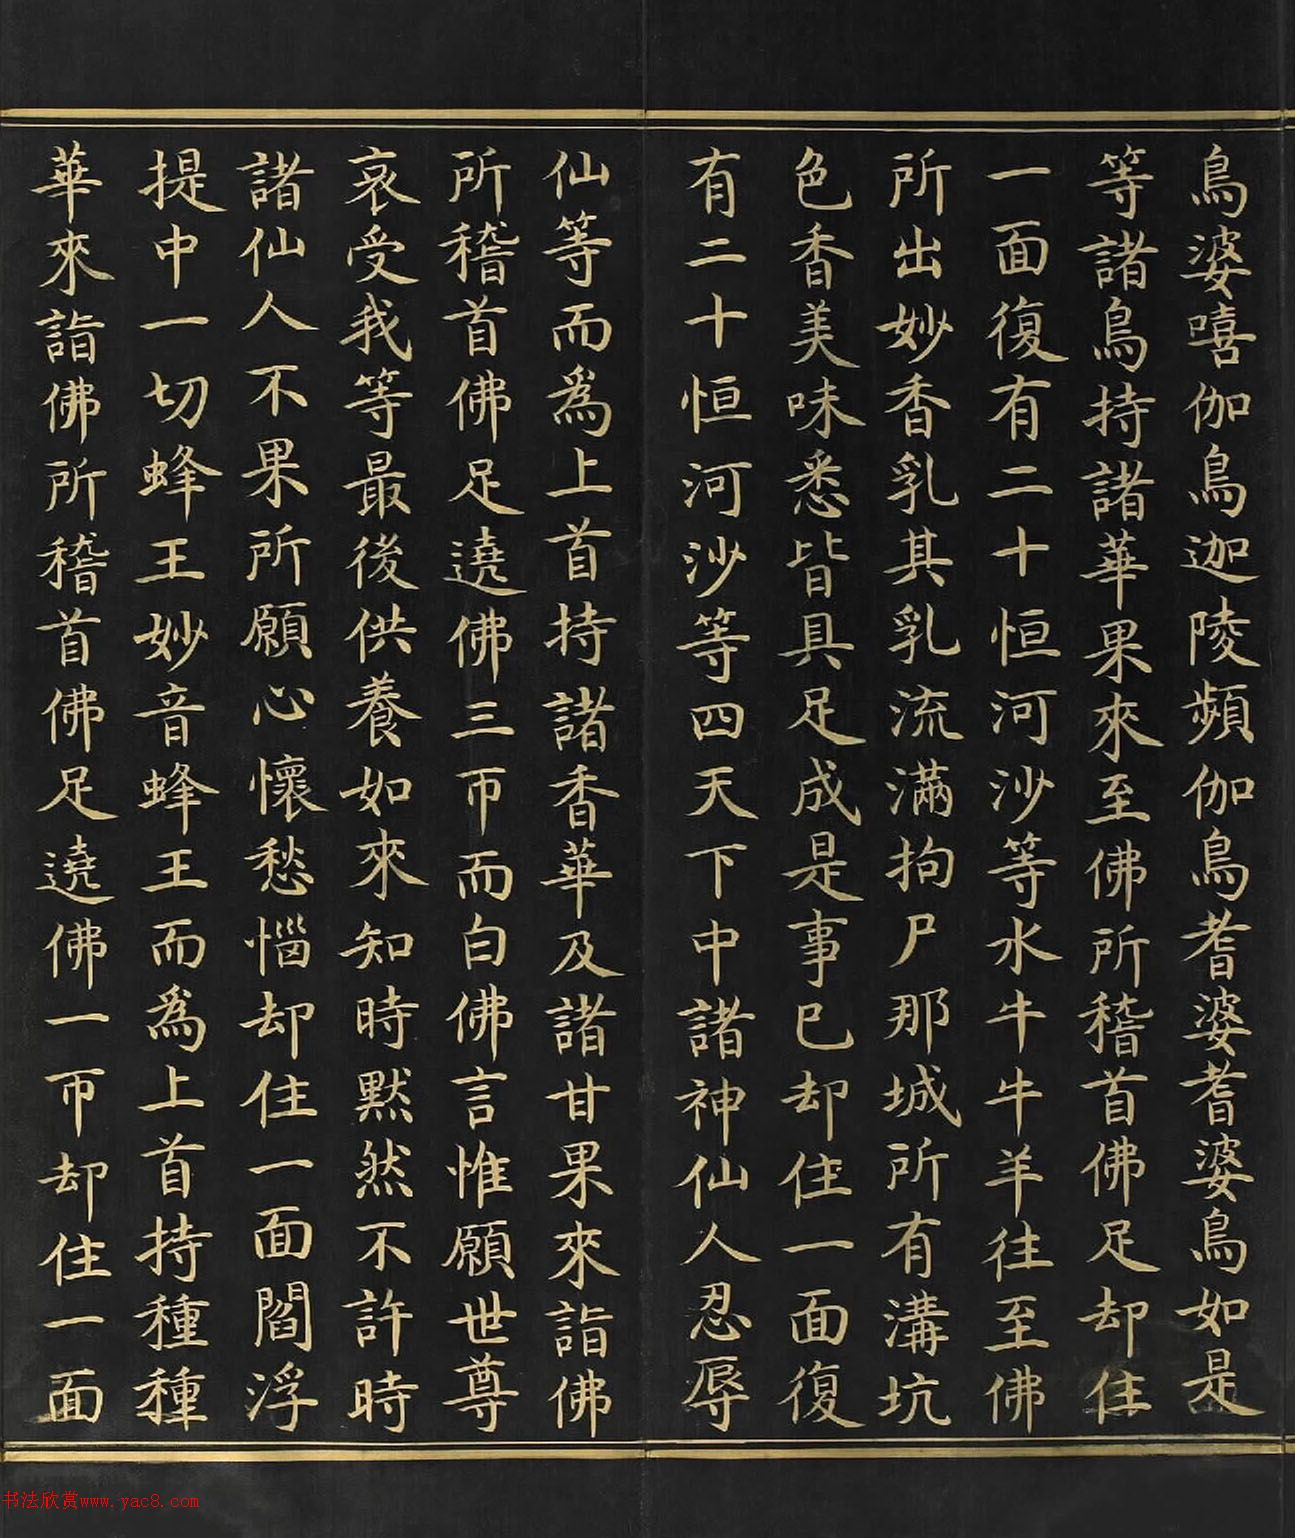 鳥婆嘻伽鳥迦陵頻伽鳥耆婆耆婆鳥如是
等諸鳥持諸華果來至佛所稽首佛足却住
一面復有二十恒河沙等水牛牛羊往至佛
所出妙香乳其乳流滿拘尸那城所有溝坑
色香美味悉皆具足成是事已却住一面復
有二十恒河沙等四天下中諸神仙人忍辱
仙等而爲上首持諸香華及諸甘果來詣佛
所稽首佛足遶佛三帀而白佛言惟願世尊
哀受我等最後供養如來知時黙然不許時
諸仙人不果所願心懷愁惱却住一面閻浮
提中一切蜂王妙音蜂王而爲上首持種種
華來詣佛所稽首佛足遶佛一帀却住一面
书法欣赏www.yac8.com